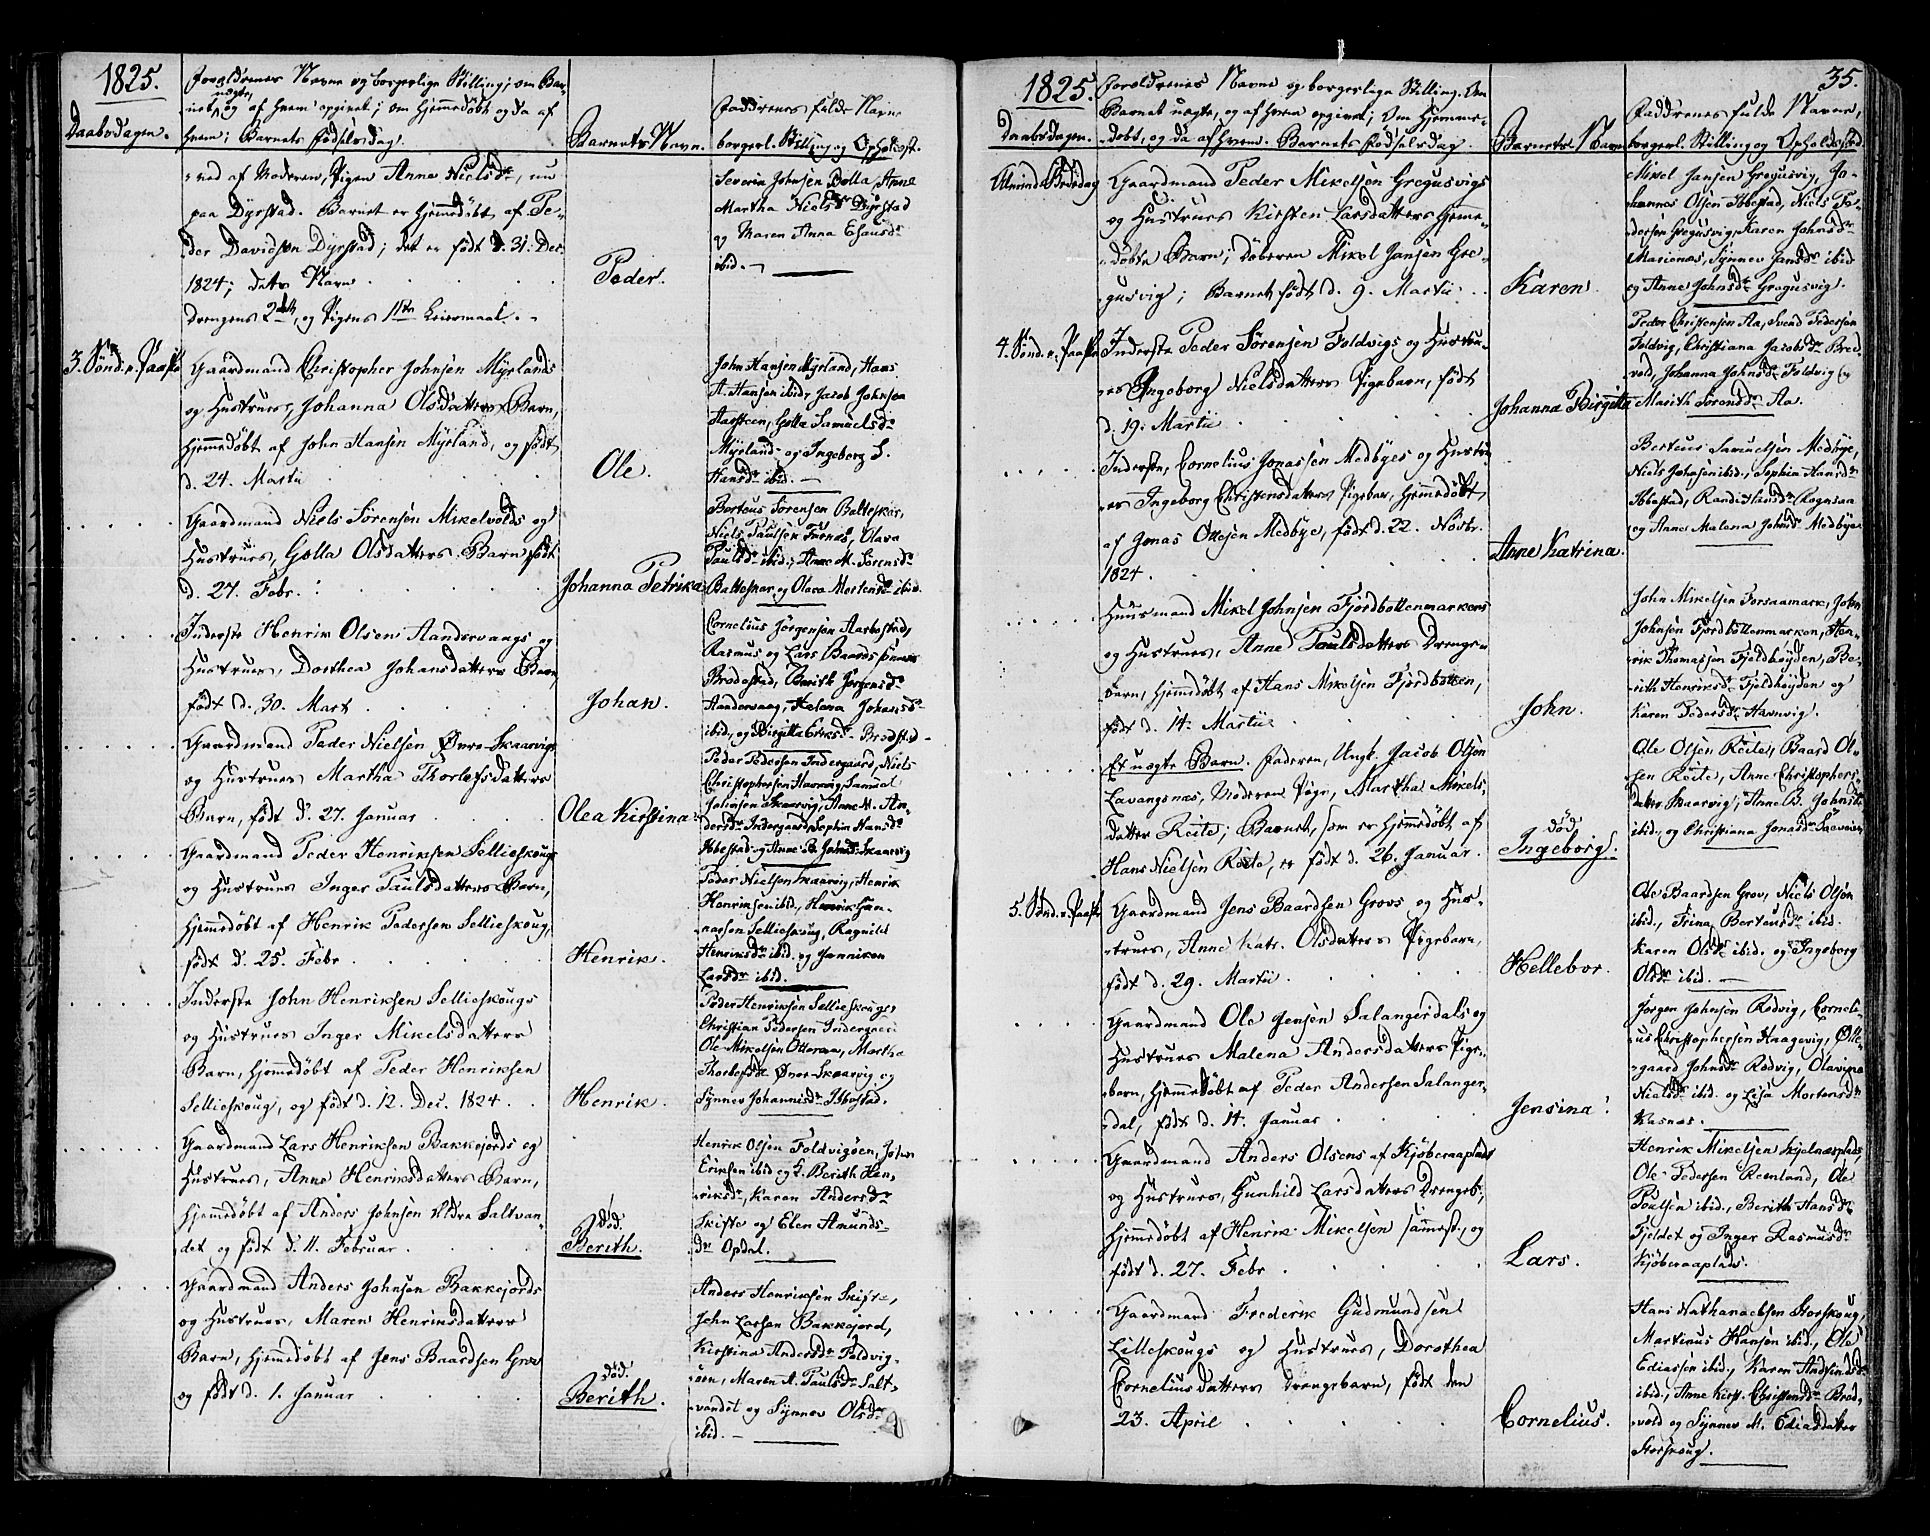 1825.
Daabsdagen.
Forældrenes Navne og borgerlige Stilling; om Bar-
net uægte, og af hvem opgivet; om hjemmedøbt og da af
hvem; Barnets Fødselsdag.
Barnets Navn.
Faddrenes fulde Navne
borgerl. Stilling og Opholdsst.
ved af Moderen, Pigen Anne Nielsdr, nu
paa Dyrstad. Barnet er hjemmedøbt af Pe-
der Davidsen Dyrstad; det er født d. 31. Dec.
1824; dets Navn
drengens 2det, og Pigens 1ste Leiermaal.
Peder.
Severin Johnsen Bolla, Anne
Martha Nielsdr Dyrstad
og Maren Anna Esausdr
ibid.
3. Sönd. e. Paaske
Gaardmand Christopher Johnsen Myrlands
og Hustrues, Johanna Olsdatters Barn,
hjemmedøbt af John Hansen Myrland, og født
d. 24. Martii
Ole.
John Hansen Myrland, Hans
A. Hansen ibid, Jacob Johnsen
Aarsteen, Golla Samuelsdr
Myrland og Ingeborg S.
Hansdr ibid.
Gaardmand Niels Sörensen Mikelvolds og
Hustrues, Golla Olsdatters Barn født
d. 27. Febr.
Johanna Petrika
Berteus Sörensen Balteskar,
Niels Paulsen Furnæs, Olava
Paulsdr ibid., Anne M. Sörensdr
Balteskar og Olava Mortensdr ibid.
Inderste Henrik Olsen Aandervaags og
Hustrues, Dorthea Johansdatters Barn,
født d. 30. Mart
Johan.
Cornelius Jörgensen Aarbostad,
Rasmus og Lars Baardssönner
Brodestad, Berith Jörgensdr
Aandervaag, Helena Johansdr
ibid, og Birgitta Eriksdr Brodstad
Gaardmand Peder Nielsen Övre-Skaarvigs
og Hustrues Martha Thorlefsdatters
Barn, født d. 27. Januar
Olea Kirstina
Peder Pedersen Indergaard, Niels
Christophersen Hamvig, Samuel
Johnsen Skaarvig, Anne M. An-
dersdr Indergaard, Sophia Hansdr
Ibbestad og Anne B. Johnsdr Skaarvig
Gaardmand Peder Henriksen Sellieskougs
og Hustrues Inger Paulsdatters Barn,
hjemmedøbt af Henrik Pedersen Sellieskoug,
født d. 25. Febr
Henrik.
Peder Nielsen Skaarvig, Henrik
Henriksen ibid., Henrik Han-
næsen Sellieskoug, Ragnild
Henriksdr ibid. og Janniken
Larsdr ibid.
Inderste John Henriksen Sellieskougs
og Hustrues Inger Mikelsdatters
Barn, hjemmedøbt af Peder Henriksen
Sellieskoug, og født d. 12. Dec. 1824.
Henrik.
Peder Henriksen Sellieskoug,
Christian Pedersen Indergaard
Ole Mikelsen Otteraae, Martha
Thorlefsdr Övre-Skaarvig og
Synnev Johannisdr Ibbestad.
Gaardmand Lars Henriksen Bakkejords og
Hustrues, Anne Henriksdatters Barn,
hjemmedøbt af Anders Johnsen Ældre Saltvan-
det og født d. 11. Februar.
Död.
Berith.
Henrik Olsen Foldvigöen, Johan
Eriksen ibid og G. Berith Hen-
riksdr, Karen Andersdr
Skifte og Elen Amunds-
dr Opdal.
Gaardmand Anders Johnsen Bakkejords
og Hustrues, Maren Henriksdatters
Barn, hjemmedøbt af Jens Baardsen Grov
og født d. 1. Januar
död.
Berith.
Anders Henriksen Skifte,
John Larsen Bakkejord,
Kirstina Andersdr Foldvig-
öen, Maren A. Paulsdr Salt-
vandet og Synnev Olsdr
ibid.
35.
1825.
Daabsdagen.
Forældrenes Navne og borgerlige Stilling. Om
Barnet uægte, og af hvem opgivet; Om hjemme-
döbt, og da af hvem. Barnets Fødselsdag.
Barnets Navn
Faddrenes fulde Navne,
borgerl. Stilling og Opholdssted
Almind. Bededag
Gaardmand Peder Mikelsen Gregusvigs
og Hustrues Kirsten Larsdatters hjemme-
døbte Barn; döberen Mikel Jansen Gre-
gusvig; Barnet født d. 9. Martii
Karen.
Mikel Jansen Gregusvig, Jo-
hannes Olsen Ibbestad, Niels Pe-
dersen Gregusvig, Karen Johnsdr
Marienæs, Synnev Jansdr ibid
og Anne Johnsdr Gregusvig.
4. Sönd. e. Paaske
Inderste Peder Sörensen Foldvigs og Hustru-
es Ingeborg Nielsdatters Pigebarn, født
d. 19. Martii
Johanna Birgitta
Peder Christensen Aa, Svend Pedersen
Foldvig, Christiana Jacobsdr Bred-
vold, Johanna Johnsdr Foldvig og
Marith Sörensdr Aa.
Inderste, Cornelius Jonassen Medbyes og Hustru-
es Ingeborg Christensdatters Pigebarn, hjemmedøbt
af Jonas Ottesen Medbye, født d. 22. Novbr.
1824.
Anne Katrina.
Berteus Samuelsen Medbye,
Niels Johnsen ibid., Sophia Hansdr
Ibbestad, Randi Hansdr Rognsaa
og Anne Malena Johnsdr Medbye
Huusmand Mikel Johnsen Fjordbottenmarkens
og Hustrues, Anne Paulsdatters Drenge-
barn, hjemmedøbt af Hans Mikelsen Fjordbotten,
født d. 14. Martii
John.
John Mikelsen Forsaamark, John
Johnsen Fjordbottenmarken, Hen-
rik Thomassen Fjeldhöyden, Be-
rith Henriksdr Fjeldhöyden og
Karen Pedersdr Hamvig.
Et uægte Barn. Faderen, Ungk. Jacob Olsen
Lavangsnæs, Moderen Pige, Martha Mikels-
datter Reite; Barnet, som er hjemmedøbt af
Hans Nielsen Reite, er født d. 26. Januar.
död
Ingeborg.
Ole Olsen Reite, Baard Ol-
sen Reite, Anne Christophers-
datter Skaarvig, Anne B. Johnsdr
ibid., og Christiana Jonasdr
5. Sönd. e. Paaske
Gaardmand Jens Baardsen Grovs og Hus-
trues, Anne Katr. Olsdatters Pigebarn,
født d. 29. Martii
Hellebor.
Ole Baardsen Grov, Niels Olsen
ibid., Trina Berteusdr ibid.
Karen Olsdr ibid. og Ingeborg
Olsdr ibid.
Gaardmand Ole Jensen Salangerdals og
Hustrues Malena Andersdatters Pige-
barn, hjemmedøbt af Peder Andersen Salanger-
dal, født d. 14. Januar
Jensina.
Jörgen Johnsen Rødvig, Corneli-
us Christophersen Kraagevig, Ölle-
gaard Johnsdr Rødvig, Olavina
Nielsdr ibid. og Lisa Mortensdr
Kasnæs.
Gaardmand Anders Olsens af Kjöberaaplads
og Hustrues, Gunhild Larsdatters Drengeb.,
hjemmedøbt af Henrik Mikelsen sammest., og
født d. 27. Febr
Lars.
Henrik Mikelsen Kjelnæsplads,
Ole Pedersen Reenland, Ole
Poulsen ibid., Berith Hansdr
Fjeldet og Inger Rasmusdr
Kjöberaaplads.
Gaardmand Frederik Gudmundsen
Lilleskougs og Hustrues, Dorothea
Cornelius datters Drengebarn, født den
23. April
Cornelius.
Hans Nathanaelsen Storskoug,
Martinus Hansen ibid., Ole
Ediassen ibid., Karen
ibid., Anne Kirst. Christensdr Bred-
vold og Synnev M. Ediasdatter
Storskoug.